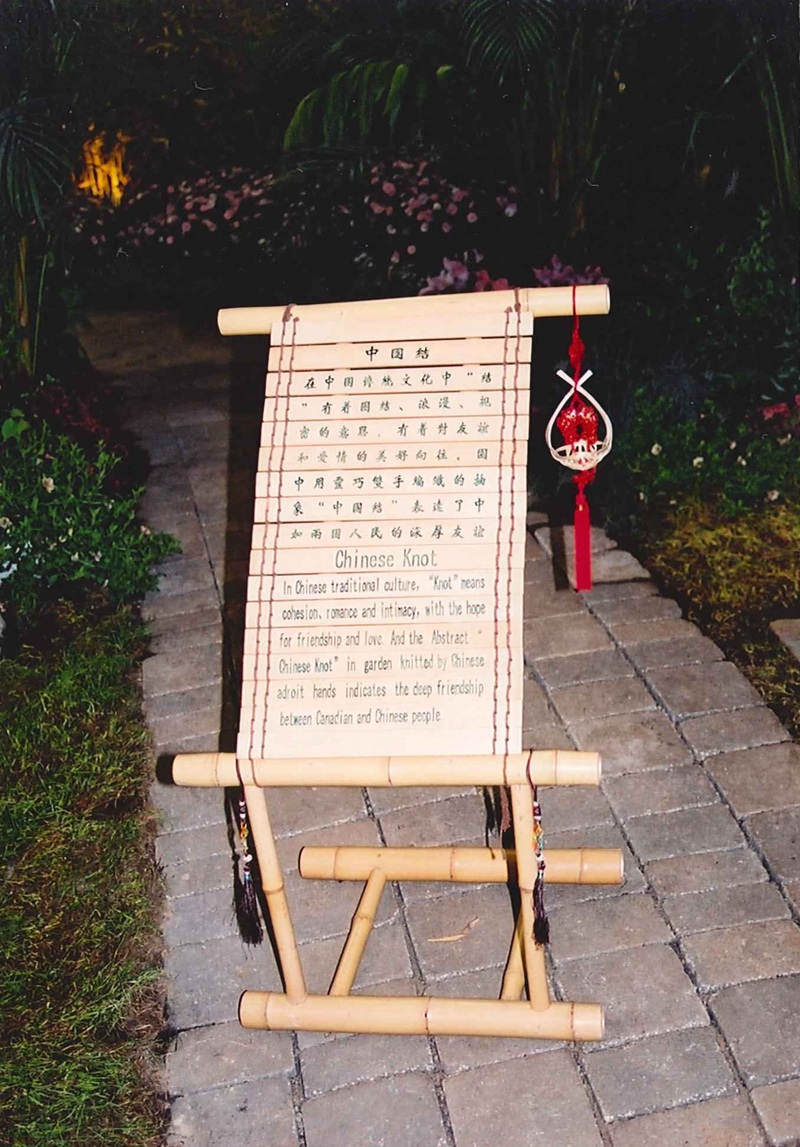 中国结
在中国传統文化中"結
"有着团结、浪漫、親
密的意思，有着對友誼
和爱情的美好向往。園
中用靈巧雙手编織的抽
象"中国結"表达了中
加兩国人民的深厚友誼
Chinese Knot
In Chinese traditional culture, "Knot" means
cohesion, romance and intimacy, with the hope
for friendship and love. And the Abstract "
Chinese Knot" in garden knitted by Chinese
adroit hands indicates the deep friendship
between Canadian and Chinese people.